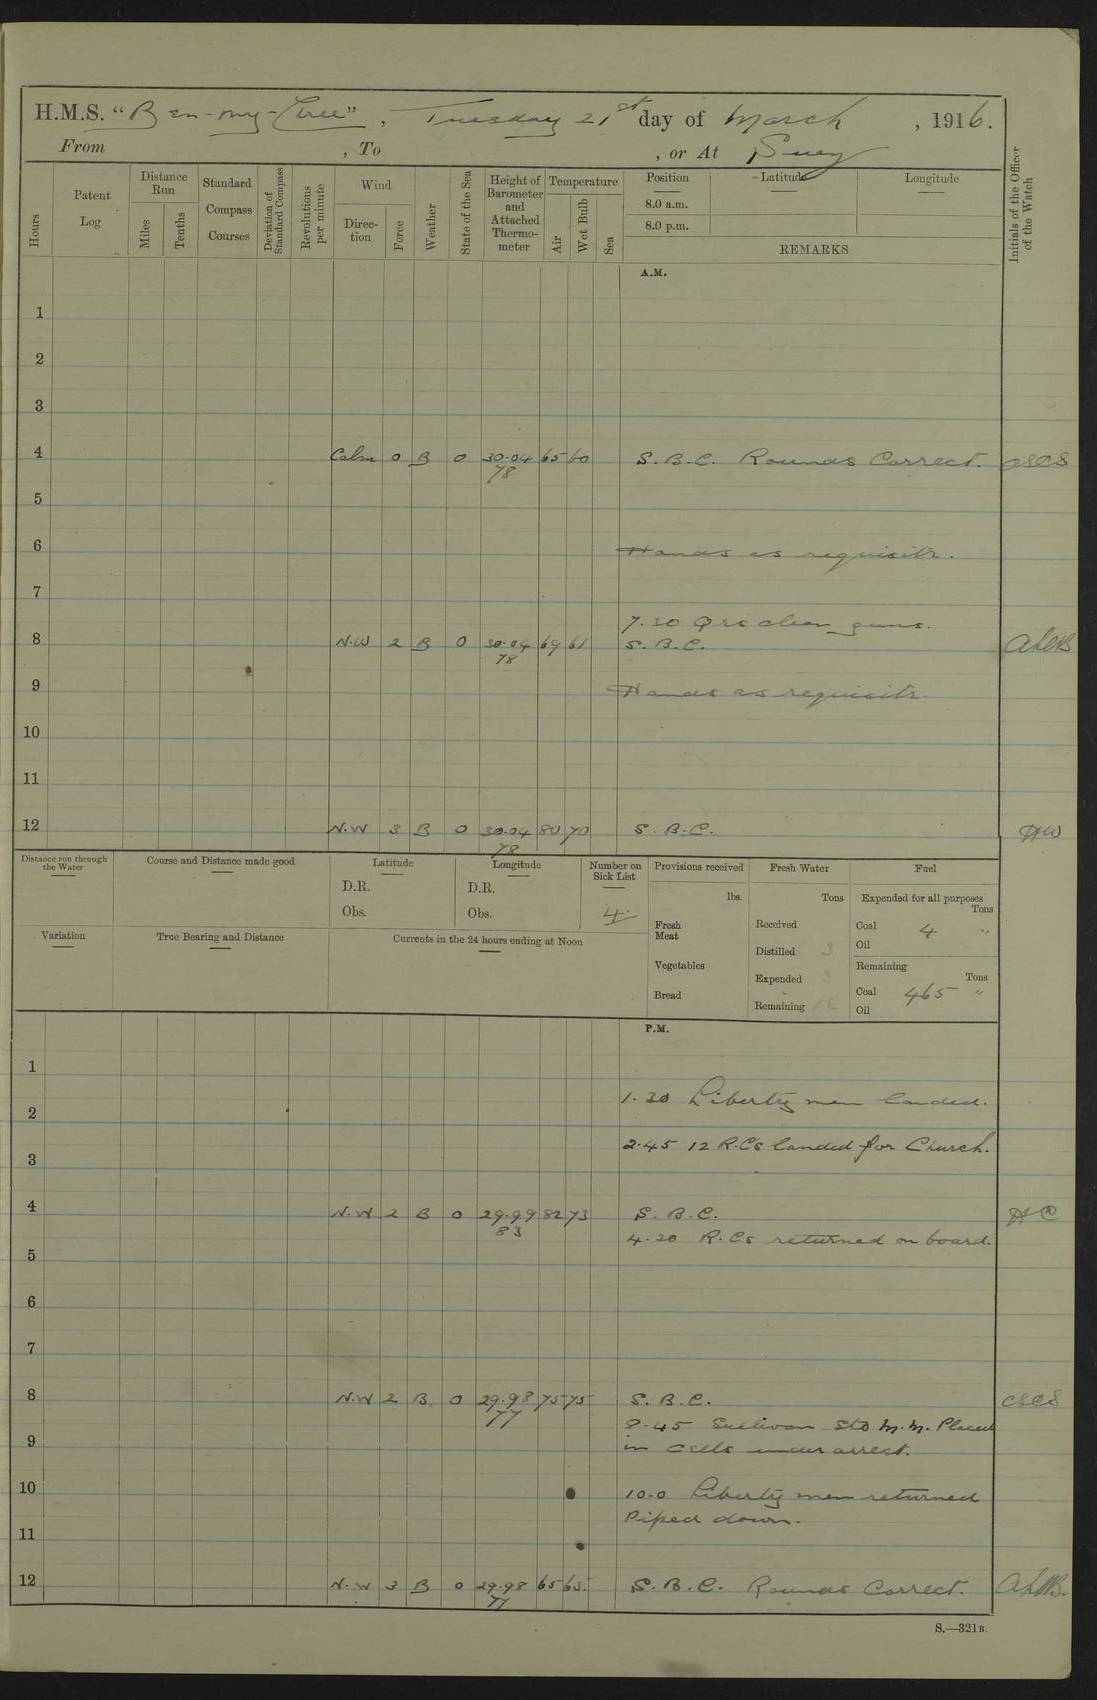 H.M.S. "Ben-my-Chree", Tuesday 21st day of March, 1916.
From , To , or At Suez
Hours
Patent Log
Distance Run
Miles
Tenths
Standard Compass Courses
Deviation of Standard Compass
Revolutions per minute
Wind
Direction
Force
Weather
State of the Sea
Height of Barometer and Attached Thermometer
Temperature
Air
Wet Bulb
Sea
Position Latitude Longitude
8.0 a.m.
8.0 p.m.
REMARKS
Initials of the Officer of the Watch
A.M.
1
2
3
4 Calm 0 B 0 30.04 65 60 S.B.C. Rounds Correct. CSCS
78
5
6 Hands as requisite.
7
7.30 Qrs clean guns.
8 N.W 2 B 0 30.04 69 61 S.B.C.
78
9 Hands as requisite.
10
11
12 N.W 3 B 0 30.04 80 70 S.B.C. HW
78
Distance run through the Water
Course and Distance made good
Latitude
D.R.
Obs.
Longitude
D.R.
Obs.
Number on Sick List
4.
Provisions received
lbs.
Fresh Meat
Vegetables
Bread
Fresh Water
Tons
Received
Distilled 3
Expended 3
Remaining
Fuel
Expended for all purposes
Tons
Coal 4 "
Oil
Remaining
Tons
Coal 465 "
Oil
Variation
True Bearing and Distance
Currents in the 24 hours ending at Noon
P.M.
1
1.30 Liberty men landed.
2
2.45 12 R.C's landed for Church.
3
4 N.W 2 B 0 29.99 82 73 S.B.C. HC
83
4.30 R.Cs returned on board.
5
6
7
8 N.W 2 B. 0 29.98 75 75 S.B.C. CSCS
77
8.45 Sullivan Sto M.M. Placed
in cells under arrest.
9
10 10.0 Liberty men returned
Piped down.
11
12 N.W 3 B 0 29.98 65 65. S.B.C. Rounds Correct.
77
S.—321B.